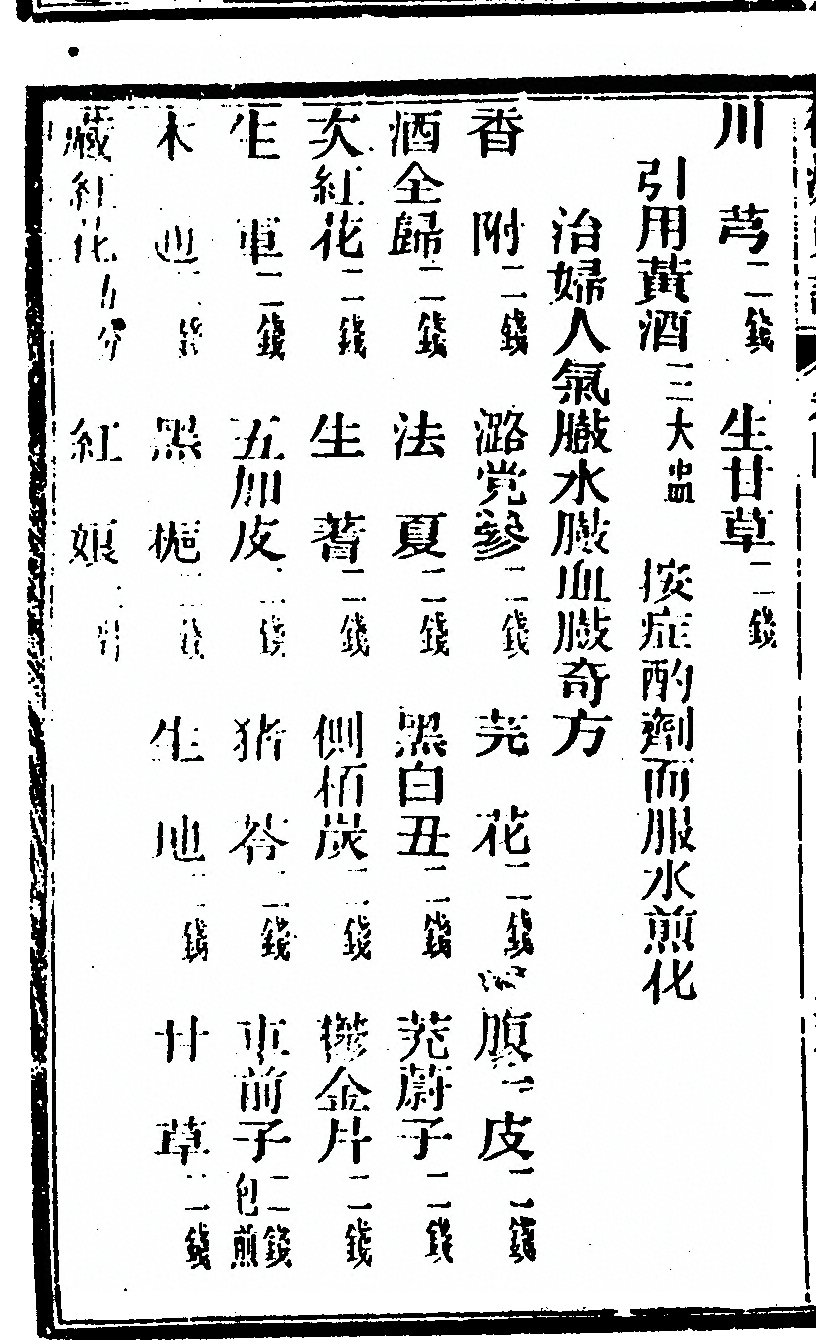 川芎二錢 生甘草二錢
引用黃酒三大盅 按症酌劑而服水煎化
治婦人氣臌水臌血臌奇方
香附二錢 潞党參二錢 芫花二錢 腹皮二錢
酒全歸二錢 法夏二錢 黑白丑二錢 茺蔚子二錢
次紅花二錢 生蓍二錢 側栢炭二錢 欝金片二錢
生軍二錢 五加皮二錢 猪苓二錢 車前子二錢包煎
木通二錢 黑梔二錢 生地二錢 甘草二錢
藏紅花五分 紅娘